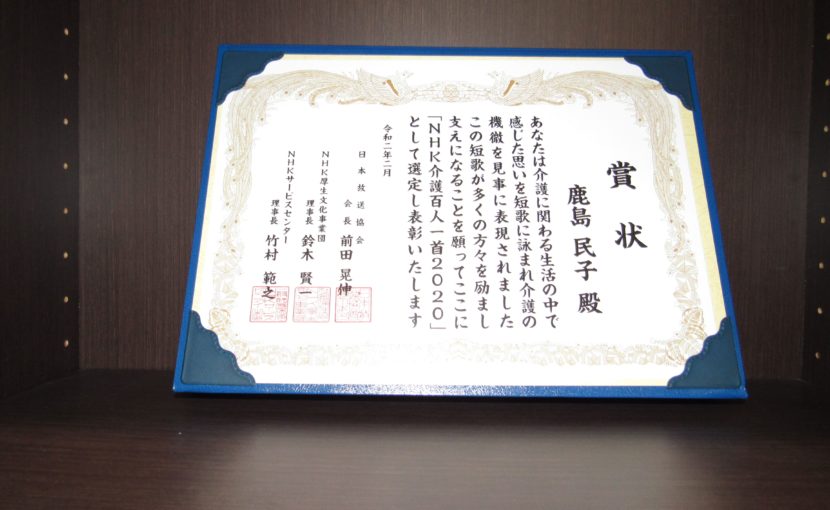 賞状
鹿島 民子 殿
あなたは介護に関わる生活の中で
感じた思いを短歌に詠まれ介護の
機微を見事に表現されました
この短歌が多くの方々を励まし
支えになることを願ってここに
「NHK介護百人一首2020」
として選定し表彰いたします
令和二年二月
日本放送協会
会長 前田 晃伸
NHK厚生文化事業団
理事長 鈴木 賢一
NHKサービスセンター
理事長 竹村 範之